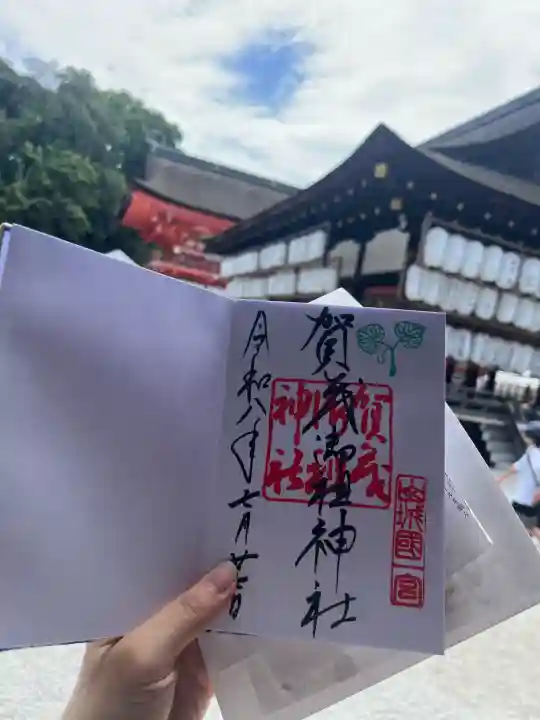 山城國一宮
賀茂御祖神社
賀茂御祖神社
令和八年七月廿日